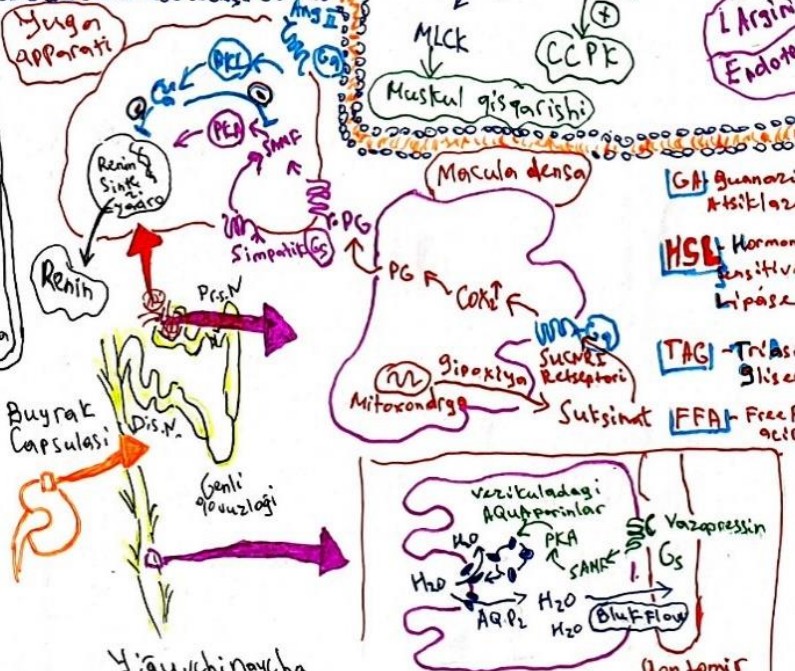 Yuga
apparati
Ang II
Gq
PKC
Ca
PKA
SAMF
Renin
Sintezi
Renin
Simpatik Gs
r-PG
MLCK
Muskul qisqarishi
+
CCPK
L Argini
Endote
Macula densa
PG
COX2↑
Gq
SUCNR1
Retseptori
gipoxiya
Mitoxondrya
Suksinat
GA
Atsikla
HSL - Hormon
Sensitiv
Lipase
TAG - Trias
glise
FFA - Free F
aci
Pr.s.N
Dis.N.
Buyrak
Capsulasi
Genli
vezikuladagi
AQUAporinlar
H2O
PKA
SAMF
Vazopressin
Gs
H2O
AQ.P2
H2O
H2O
Bluk Flow